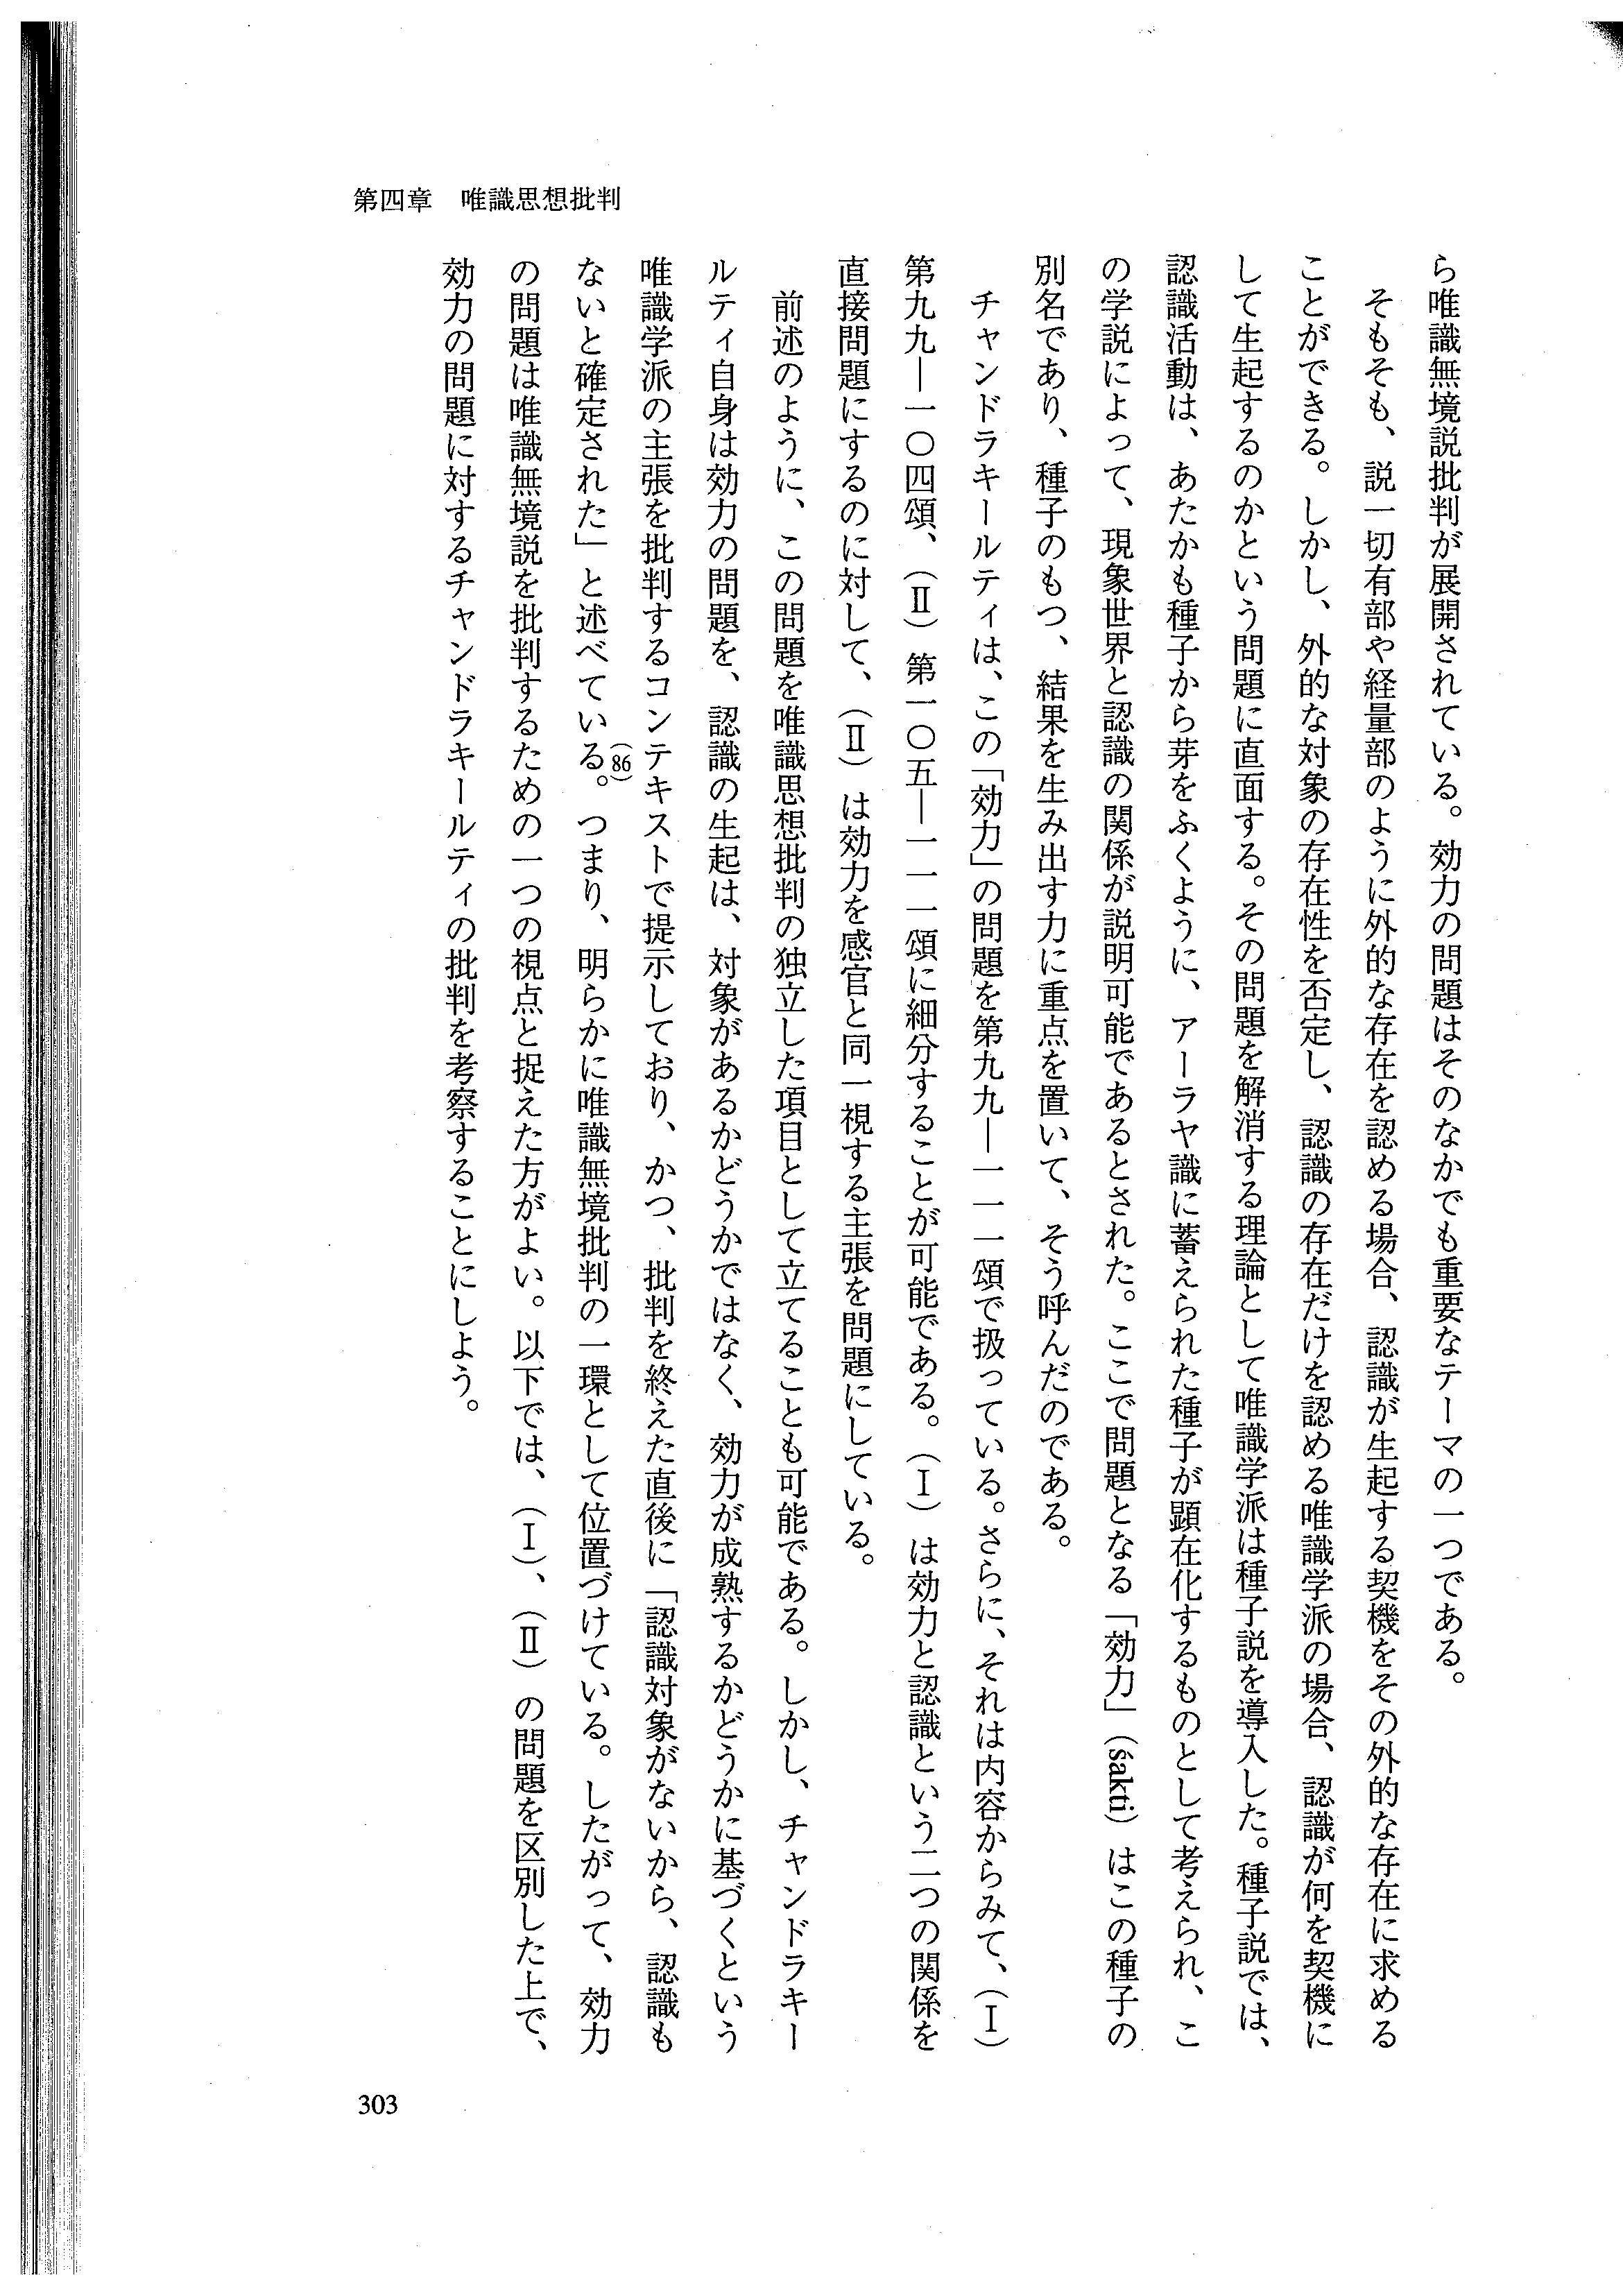 第四章　唯識思想批判
ら唯識無境説批判が展開されている。効力の問題はそのなかでも重要なテーマの一つである。
　そもそも、説一切有部や経量部のように外的な存在を認める場合、認識が生起する契機をその外的な存在に求める
ことができる。しかし、外的な対象の存在性を否定し、認識の存在だけを認める唯識学派の場合、認識が何を契機に
して生起するのかという問題に直面する。その問題を解消する理論として唯識学派は種子説を導入した。種子説では、
認識活動は、あたかも種子から芽をふくように、アーラヤ識に蓄えられた種子が顕在化するものとして考えられ、こ
の学説によって、現象世界と認識の関係が説明可能であるとされた。ここで問題となる「効力」（śakti）はこの種子の
別名であり、種子のもつ、結果を生み出す力に重点を置いて、そう呼んだのである。
　チャンドラキールティは、この「効力」の問題を第九九―一一一頌で扱っている。さらに、それは内容からみて、（Ⅰ）
第九九―一〇四頌、（Ⅱ）第一〇五―一一一頌に細分することが可能である。（Ⅰ）は効力と認識という二つの関係を
直接問題にするのに対して、（Ⅱ）は効力を感官と同一視する主張を問題にしている。
　前述のように、この問題を唯識思想批判の独立した項目として立てることも可能である。しかし、チャンドラキー
ルティ自身は効力の問題を、認識の生起は、対象があるかどうかではなく、効力が成熟するかどうかに基づくという
唯識学派の主張を批判するコンテキストで提示しており、かつ、批判を終えた直後に「認識対象がないから、認識も
ないと確定された」と述べている。（86）つまり、明らかに唯識無境批判の一環として位置づけている。したがって、効力
の問題は唯識無境説を批判するための一つの視点と捉えた方がよい。以下では、（Ⅰ）、（Ⅱ）の問題を区別した上で、
効力の問題に対するチャンドラキールティの批判を考察することにしよう。
303